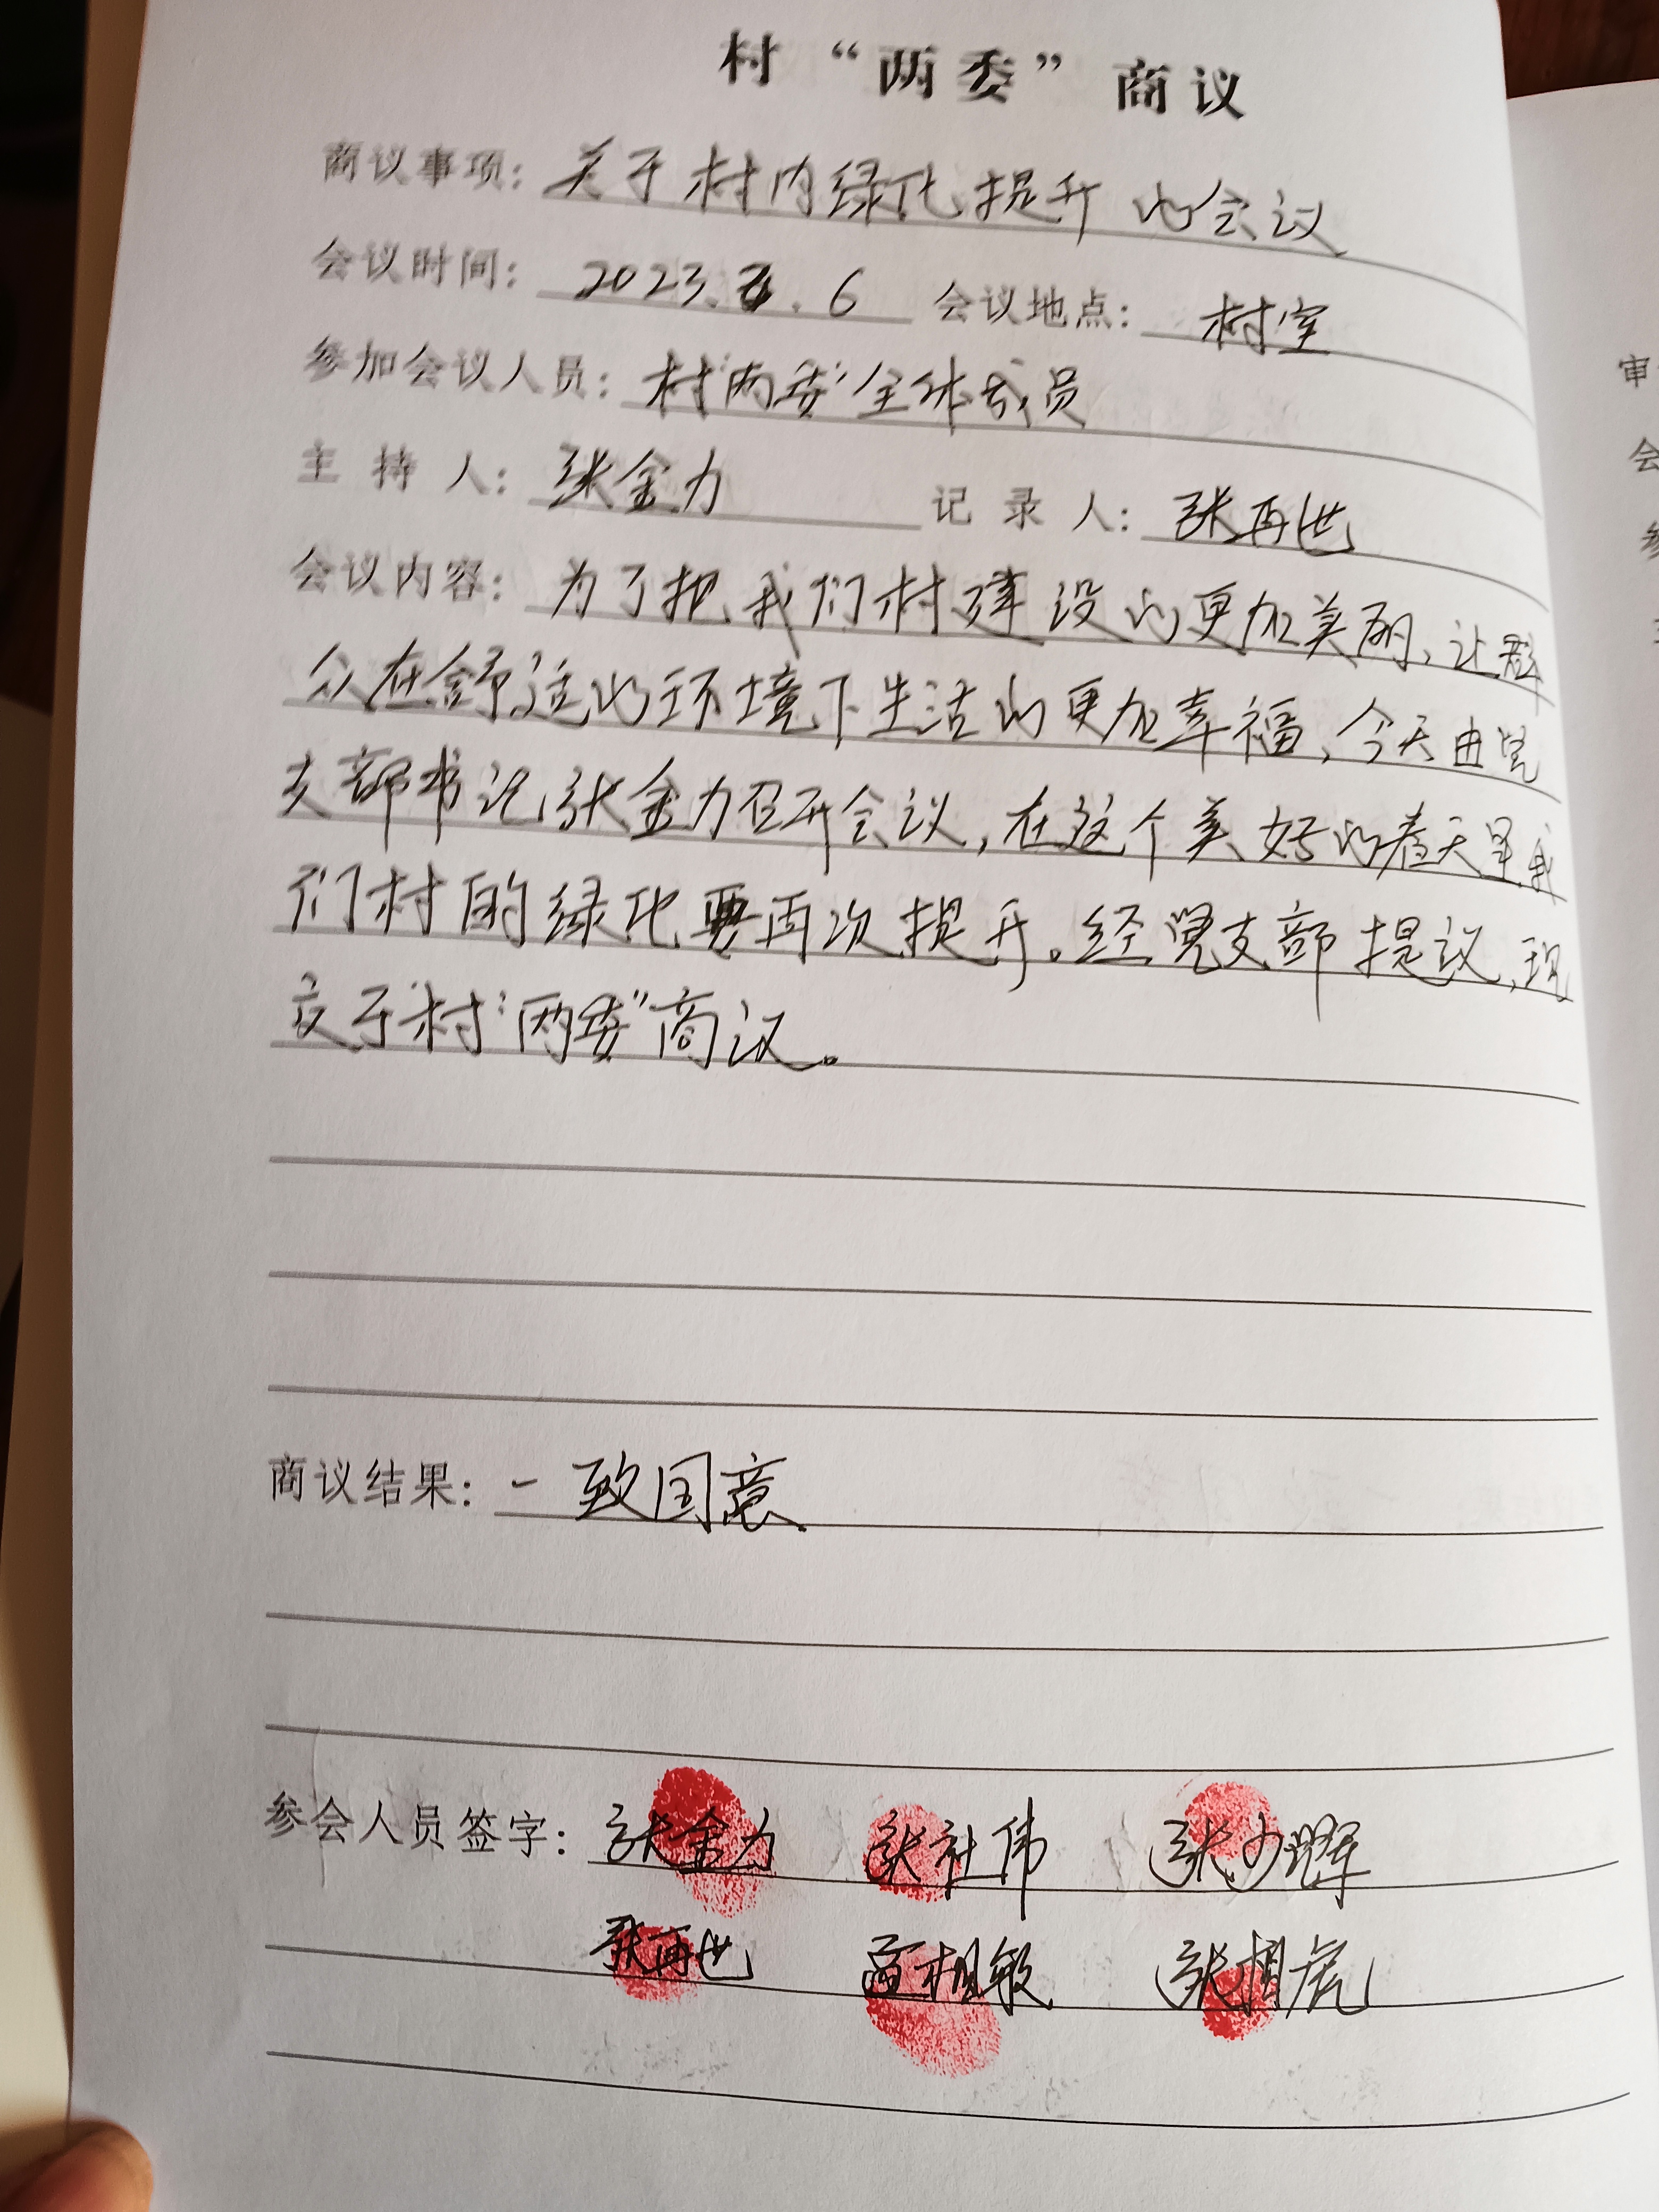 村“两委”商议
商议事项: 关于村内绿化提升的会议
会议时间: 2023. . 6 会议地点: 村室
参加会议人员: 村“两委”全体成员
主持人: 张金力 记录人: 张再世
会议内容: 为了把我们村建设的更加美丽,让群
众在舒适的环境下生活的更加幸福,今天由党
支部书记张金力召开会议,在这个美好的春天里,我
们村的绿化要再次提升。经党支部提议,现
交于村“两委”商议。
商议结果: 一致同意
参会人员签字: 张金力 张社伟 张少辉
张再世 相敏 张相虎
审
会
参
主